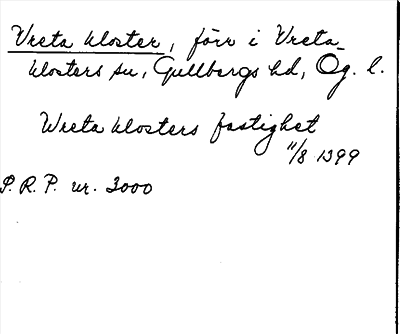 Vreta kloster, förr i Vreta
klosters sn, Gullbergs hd, Ög. l.
Wreta klosters fastighet
11/8 1399
P. R. P. nr. 3000